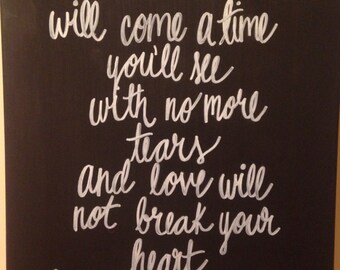 will come a time
you'll see
with no more
tears
and love will
not break your
heart